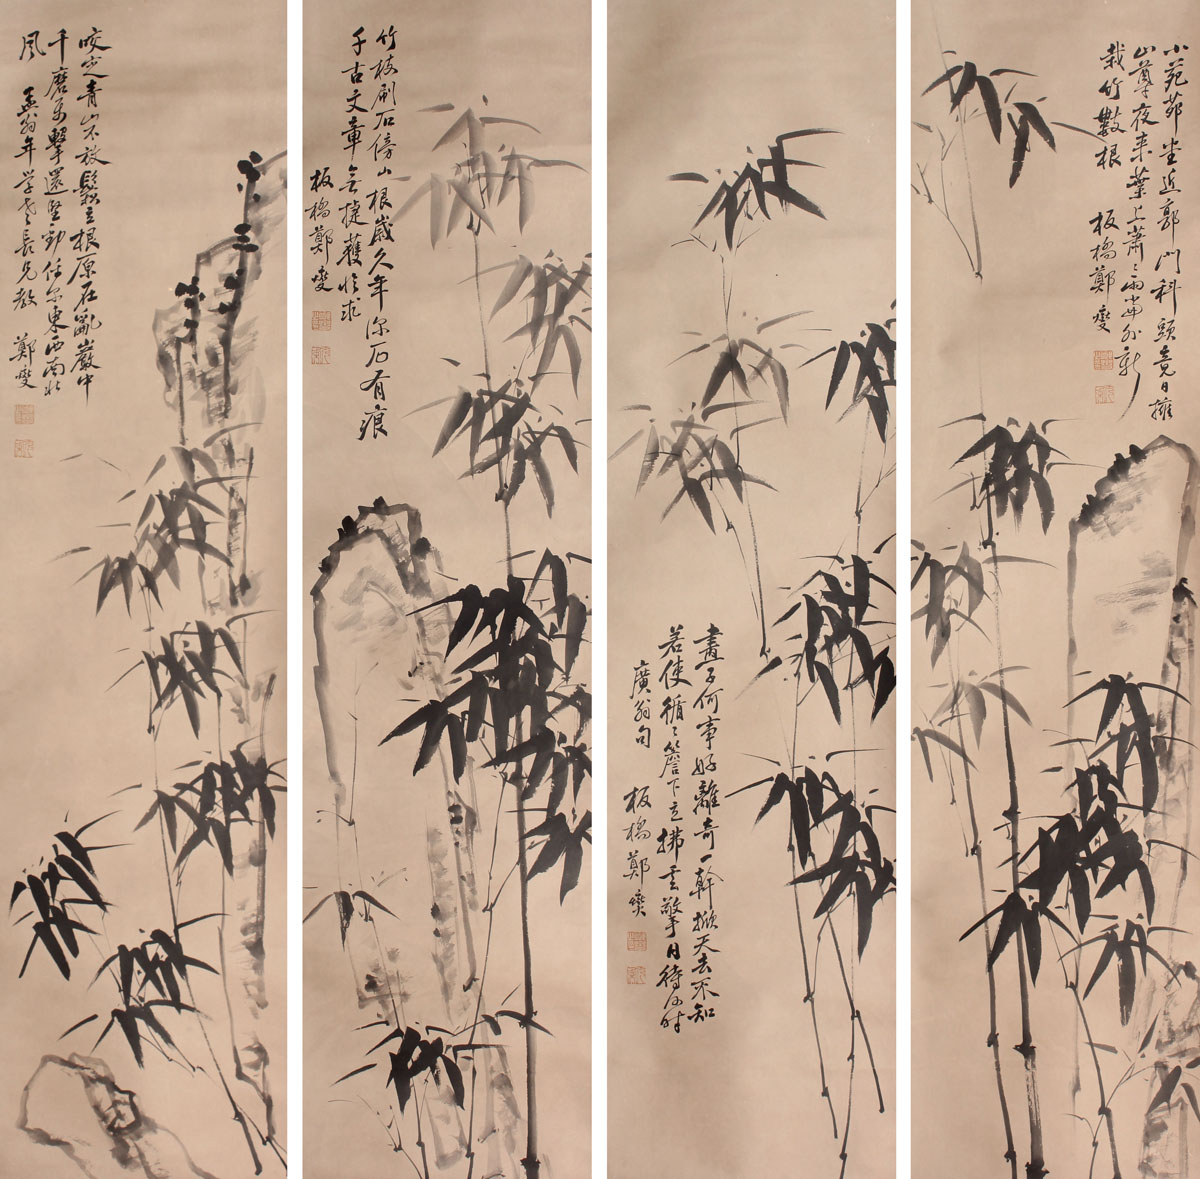 小苑茆堂近郭門科頭竟日擁
山尊夜来葉上蕭〻雨窗外新
栽竹數根
板橋鄭燮
畫工何事好離奇一幹掀天去不知
若使循〻簷下立拂雲擎日待何時
廣翁句
板橋鄭燮
竹枝刷石傍山根歲久年深石有痕
千古文章無捷獲
板橋鄭燮
咬定青山不放鬆立根原在亂巖中
千磨萬擊還堅勁任尔東西南北
風
孟翁年學老長兄教
鄭燮